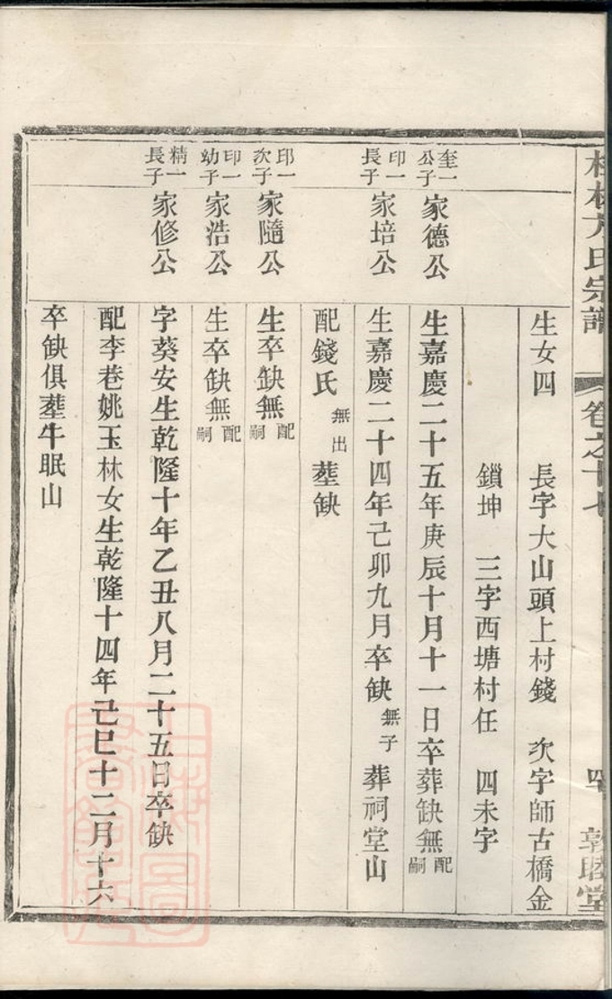 桂林方氏宗譜 卷之十七 敦睦堂
生女四 長字大山頭上村錢 次字師古橋金
鎖坤 三字西塘村任 四未字
奎一公子 家德公 生嘉慶二十五年庚辰十月十一日卒葬缺無配嗣
印一長子 家培公 生嘉慶二十四年己卯九月卒缺無子 葬祠堂山
配錢氏無出 塟缺
印一次子 家隨公 生卒缺無配嗣
印一幼子 家浩公 生卒缺無配嗣
精一長子 家修公 字葵安生乾隆十年乙丑八月二十五日卒缺
配李巷姚玉林女生乾隆十四年己巳十二月十六
卒缺俱塟牛眠山